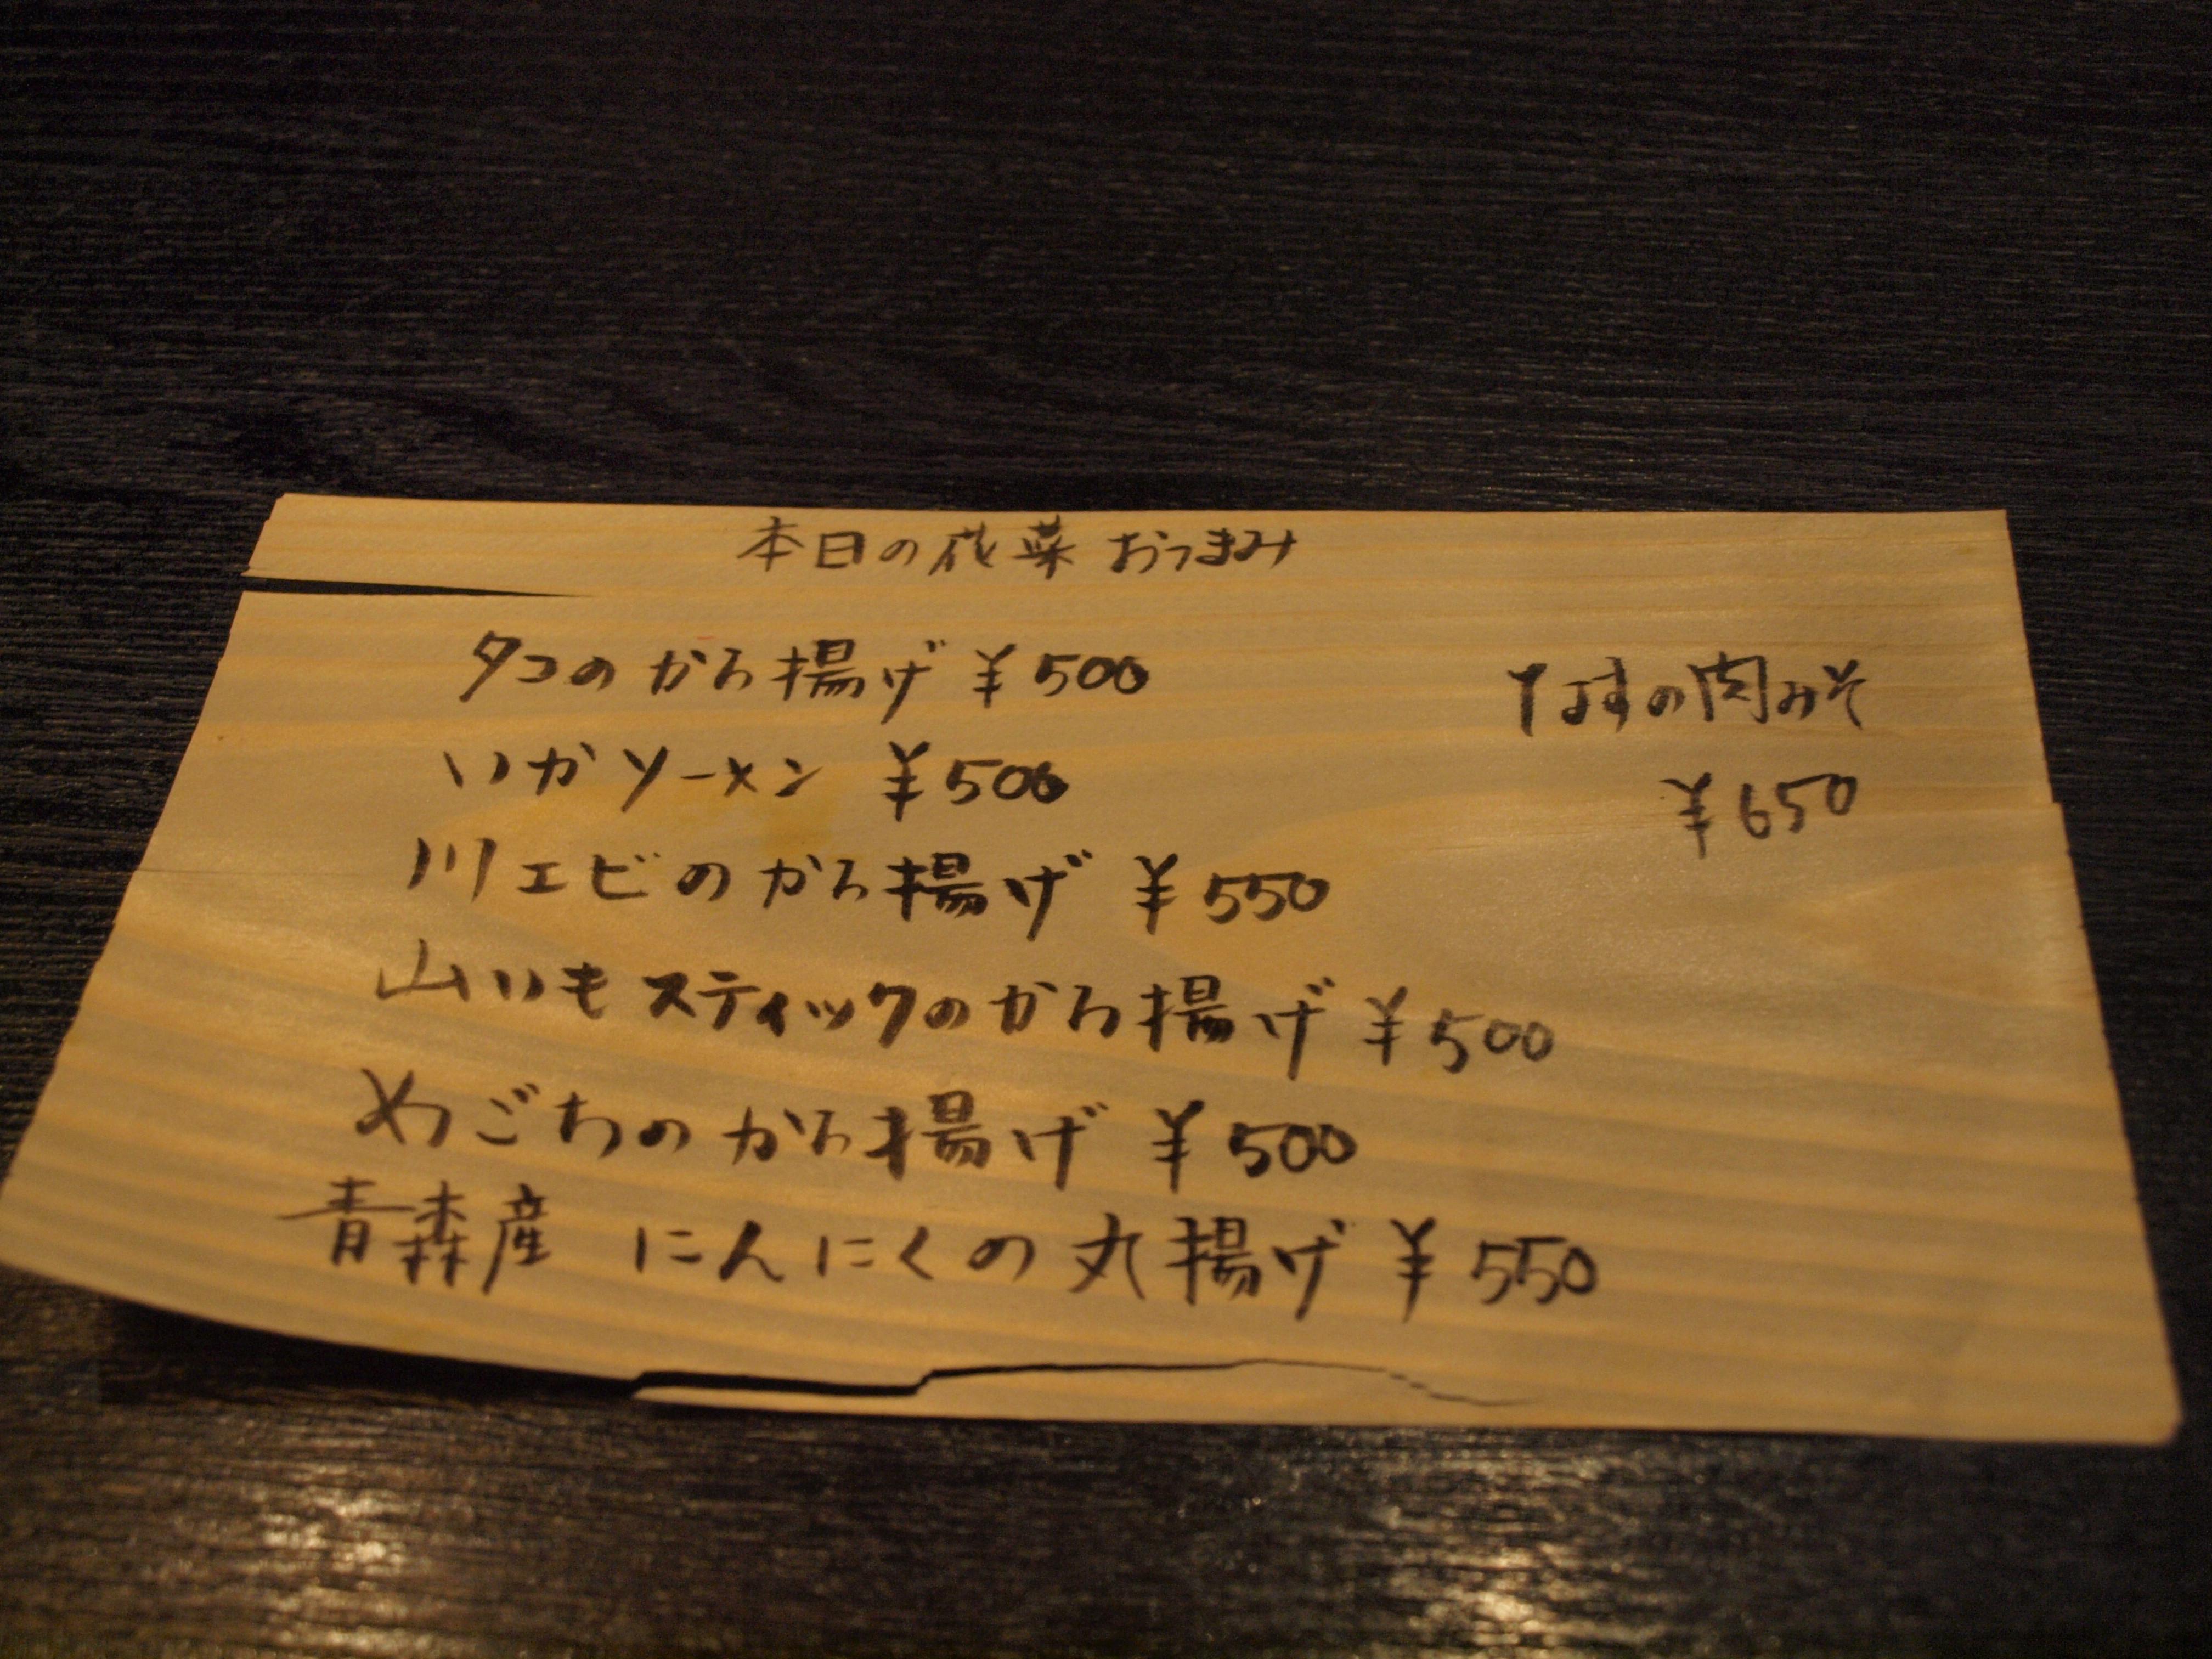 本日の花菜 おつまみ
タコのから揚げ ¥500
いかソーメン ¥500
川エビのから揚げ ¥550
山いもスティックのから揚げ ¥500
めごちのから揚げ ¥500
青森産 にんにくの丸揚げ ¥550
なすの肉みそ
¥650